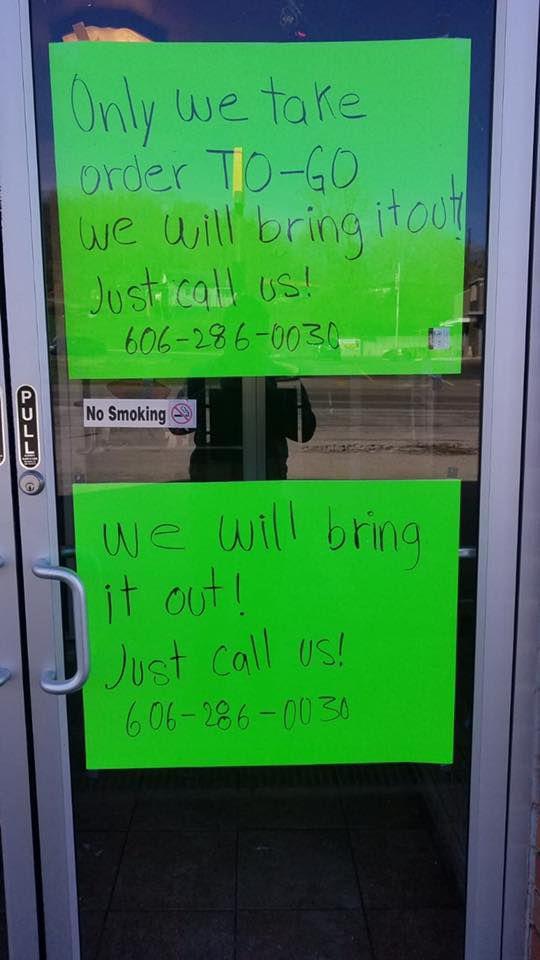 Only we take
order TO-GO
we will bring it out!
Just call us!
606-286-0030
PULL
No Smoking
we will bring
it out!
Just call us!
606-286-0030